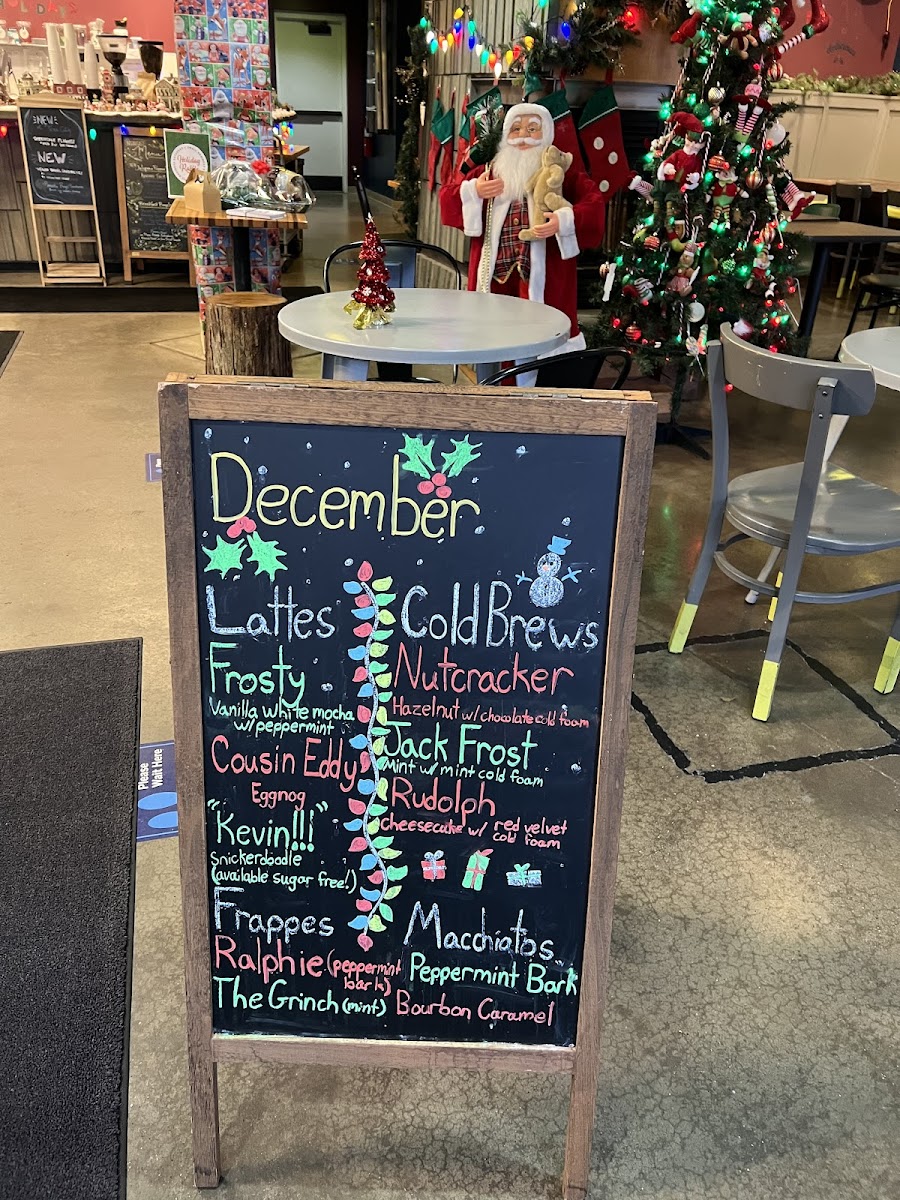 HOLIDAYS
NEW
NEW
Holiday
Please
Wait Here
December
Lattes
Frosty
Vanilla white mocha
w/peppermint
Cousin Eddy
Eggnog
"Kevin!!!"
Snickerdoodle
(available sugar free!)
Cold Brews
Nutcracker
Hazelnut w/chocolate cold foam
Jack Frost
Mint w/ mint cold foam
Rudolph
Cheesecake w/ red velvet
cold foam
Frappes
Ralphie (peppermint
bark)
The Grinch (mint)
Macchiatos
Peppermint Bark
Bourbon Caramel